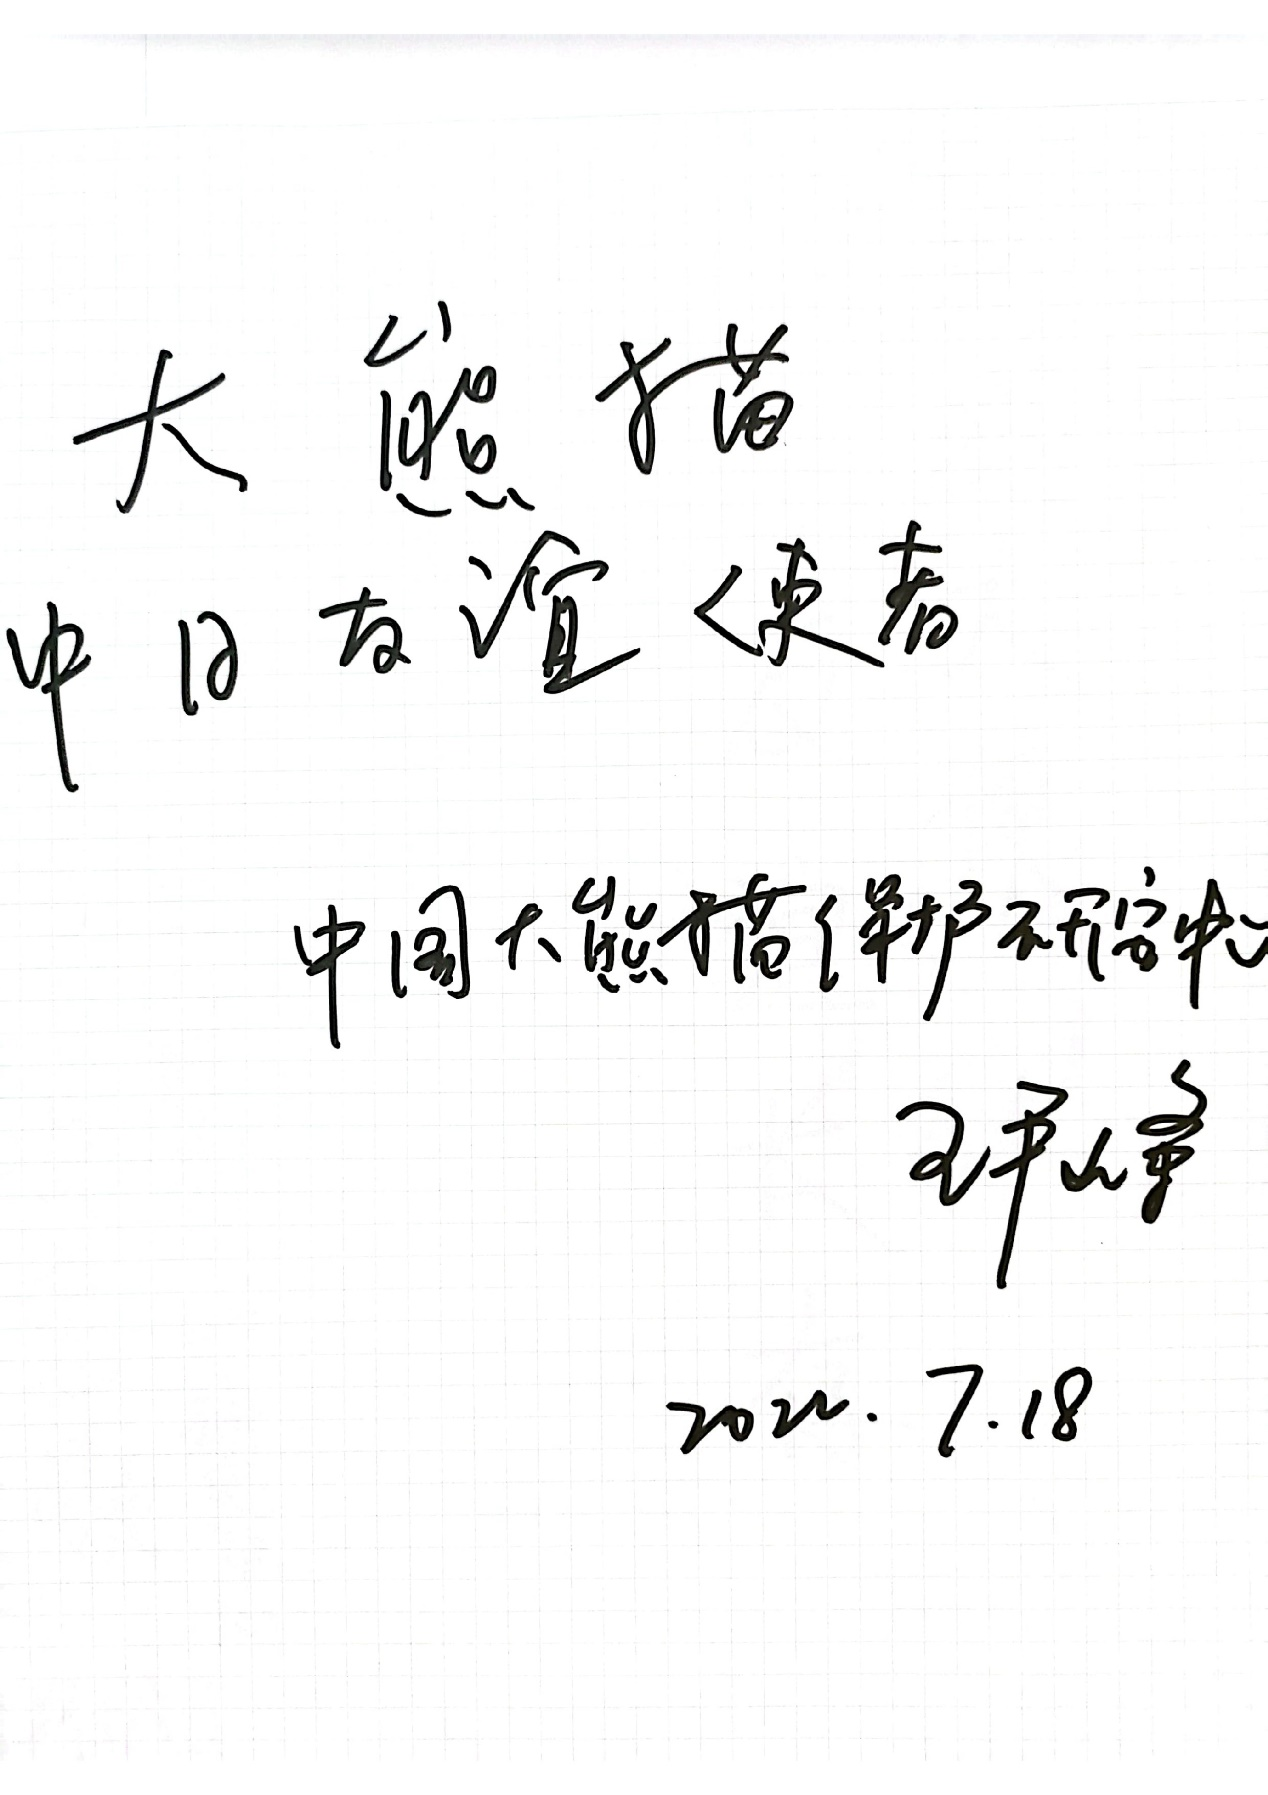 大熊猫
中日友谊使者
中国大熊猫保护研究中心
王平峰
2022.7.18